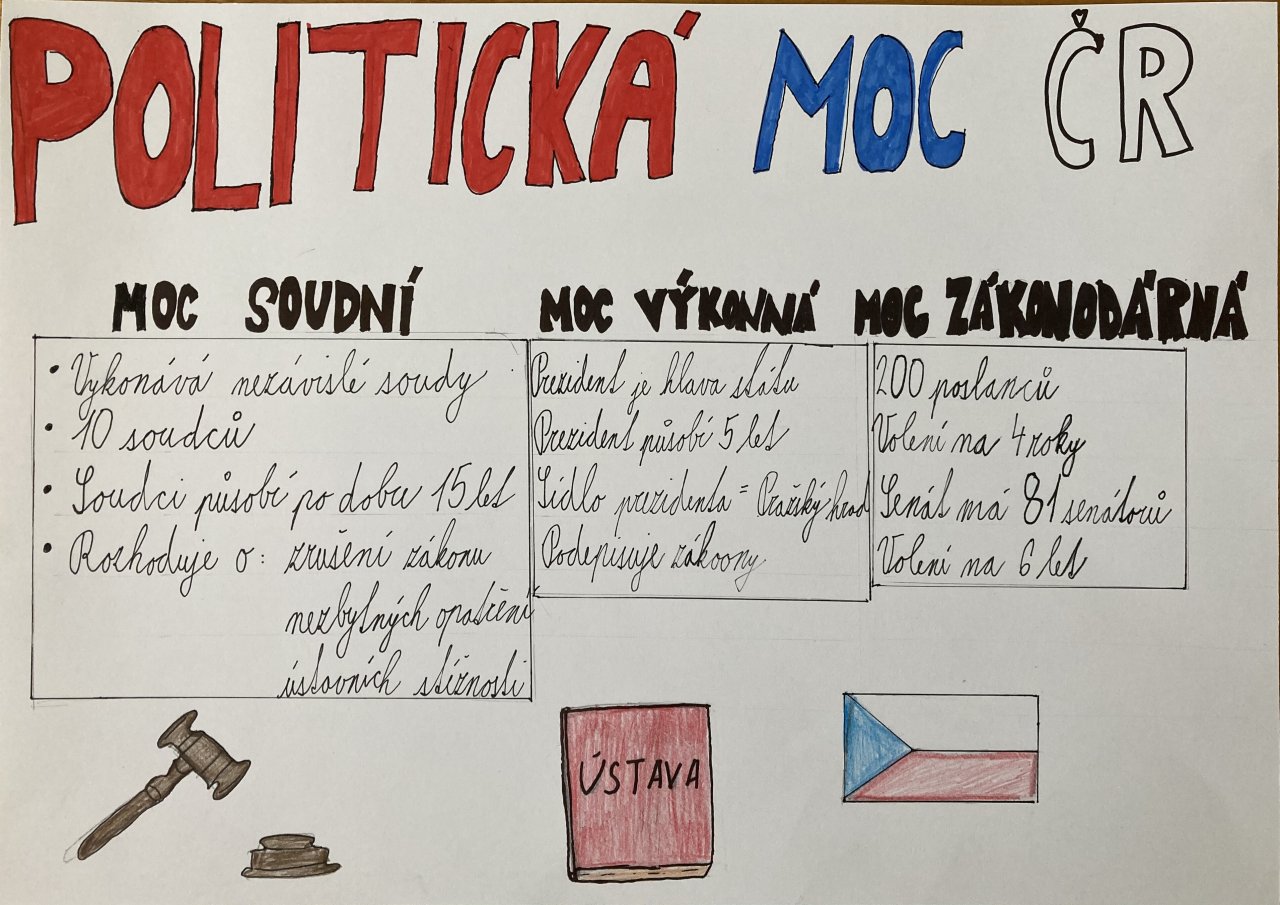 POLITICKÁ MOC ČR
MOC SOUDNÍ
• Vykonává nezávislé soudy
• 10 soudců
• Soudci působí po dobu 15 let
• Rozhoduje o: zrušení zákonu
nezbytných opatření
ústavních stížností
MOC VÝKONNÁ
Prezident je hlava státu
Prezident působí 5 let
Sídlo prezidenta = Pražský hrad
Podepisuje zákoony
MOC ZÁKONODÁRNÁ
200 poslanců
Volení na 4 roky
Senát má 81 senátorů
Volení na 6 let
ÚSTAVA